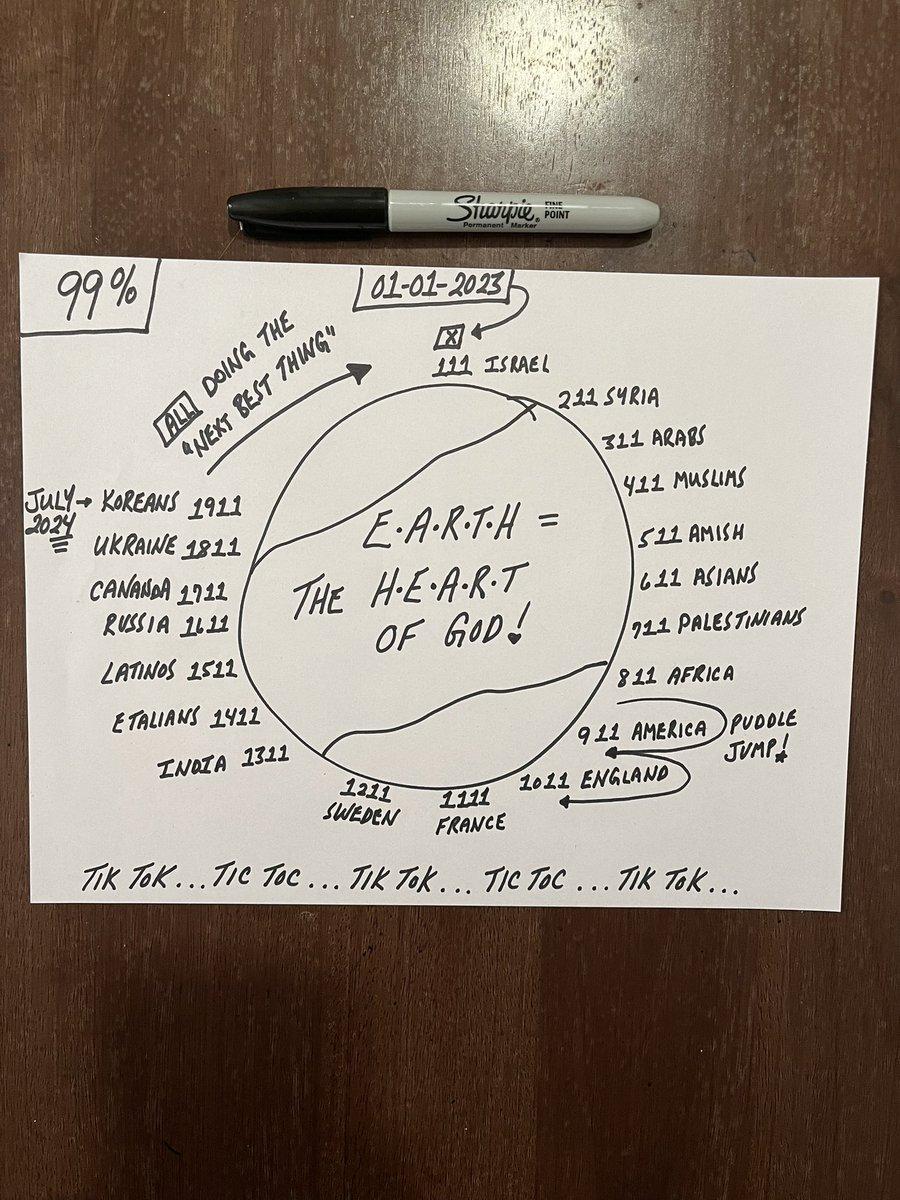 Sharpie® FINE POINT
Permanent Marker
99%
01-01-2023
X
ALL DOING THE
"NEXT BEST THING"
111 ISRAEL
211 SYRIA
311 ARABS
411 MUSLIMS
511 AMISH
611 ASIANS
711 PALESTINIANS
811 AFRICA
911 AMERICA
PUDDLE
JUMP!
1011 ENGLAND
1111
FRANCE
1211
SWEDEN
INDIA 1311
ETALIANS 1411
LATINOS 1511
RUSSIA 1611
CANANDA 1711
UKRAINE 1811
JULY → KOREANS 1911
2024
E.A.R.T.H =
THE H.E.A.R.T
OF GOD!
TIK TOK... TIC TOC... TIK TOK... TIC TOC... TIK TOK...